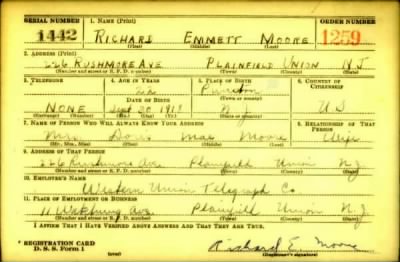 SERIAL NUMBER 1. NAME (Print) ORDER NUMBER
1442 RICHARD EMMETT MOORE 1259
(First) (Middle) (Last)
2. ADDRESS (Print)
226 RUSHMORE AVE PLAINFIELD UNION N J
(Number and street or R. F. D. number) (Town) (County) (State)
3. TELEPHONE 4. AGE IN YEARS 5. PLACE OF BIRTH 6. COUNTRY OF CITIZENSHIP
DATE OF BIRTH (Town or county)
NONE Sept 20 N J U S
(Exchange) (Number) (Mo.) (Day) (Yr.) (State or country)
7. NAME OF PERSON WHO WILL ALWAYS KNOW YOUR ADDRESS 8. RELATIONSHIP OF THAT PERSON
Mrs Doris Mae Moore Wife
(Mr., Mrs., Miss) (First) (Middle) (Last)
9. ADDRESS OF THAT PERSON
226 Rushmore Ave Plainfield Union N. J.
(Number and street or R. F. D. number) (Town) (County) (State)
10. EMPLOYER'S NAME
Western Union Telegraph Co
11. PLACE OF EMPLOYMENT OR BUSINESS
11 Ave Plainfield Union N. J.
(Number and street or R. F. D. number) (Town) (County) (State)
I AFFIRM THAT I HAVE VERIFIED ABOVE ANSWERS AND THAT THEY ARE TRUE.
REGISTRATION CARD
D. S. S. Form 1 (over) Richard E. Moore
(Registrant's signature)